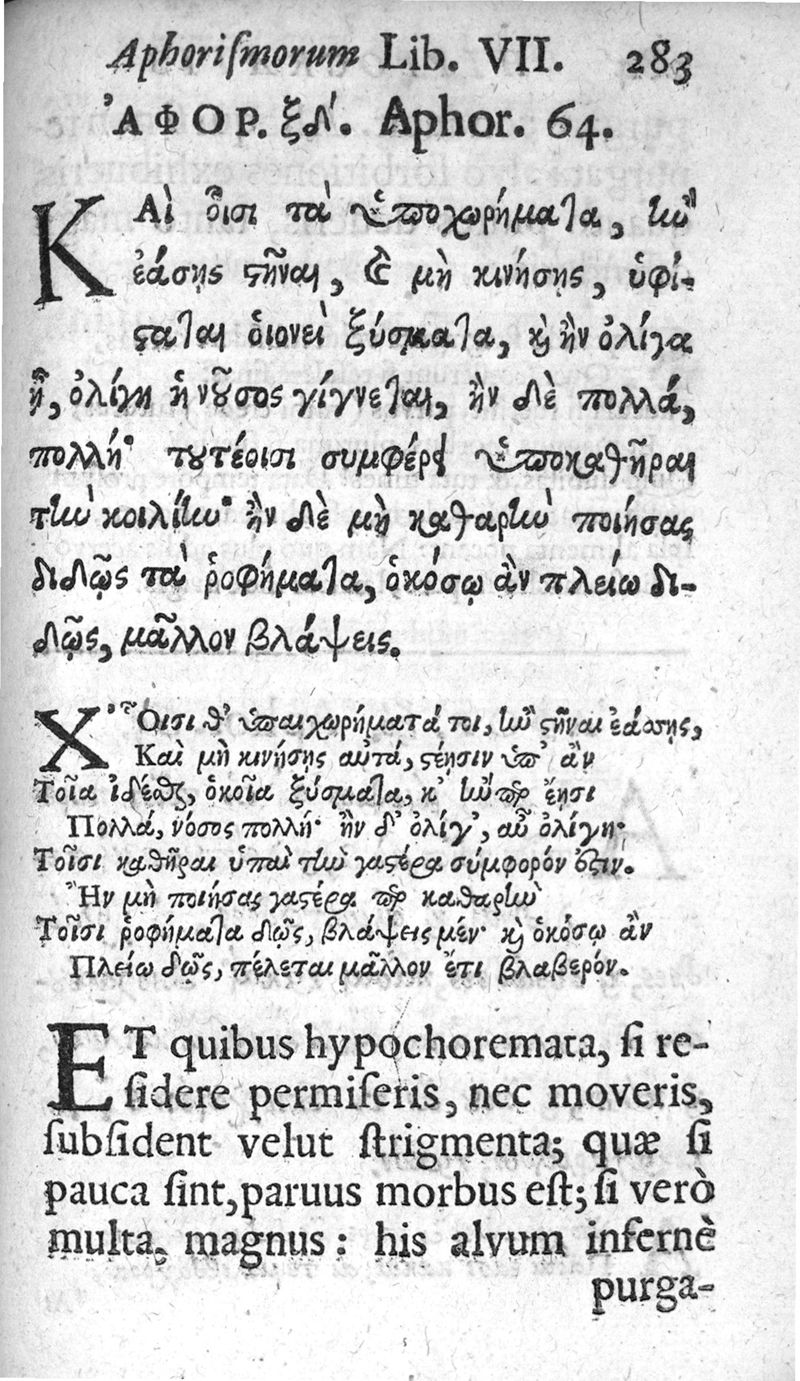 Aphoriſmorum Lib. VII. 283
ἈΦΟΡ. ξδ´. Aphor. 64.
ΚΑὶ ὅισι τὰ ὑποχωρήματα, ἢν
ἐάσῃς στῆναι, καὶ μὴ κινήσῃς, ὑφί-
σταται ὁιονεὶ ξύσματα, καὶ ἢν ὀλίγα
ᾖ, ὀλίγη ἡ νοῦσος γίγνεται, ἢν δὲ πολλά,
πολλή· τουτέοισι συμφέρει ὑποκαθῆραι
τὴν κοιλίην· ἢν δὲ μὴ καθαρὴν ποιήσας
διδῷς τὰ ῥοφήματα, ὁκόσῳ ἂν πλείω δι-
δῷς, μᾶλλον βλάψεις.
Χ᾽Ὅισι θ᾽ ὑπαιχωρήματά τοι, ἢν στῆναι ἐάσῃς,
Καὶ μὴ κινήσῃς αὐτά, στέησιν ὑπ᾽ ἂν
Τοῖα ἰδέσθαι, ὁκοῖα ξύσματα, κ᾽ ἤν περ ἔησι
Πολλά, νόσος πολλή· ἢν δ᾽ ὀλίγ᾽, αὖ ὀλίγη·
Τοῖσι καθῆραι ὑπαὶ τὴν γαστέρα σύμφορόν ἐστιν.
Ἢν μὴ ποιήσας γαστέρα περ καθαρὴν
Τοῖσι ῥοφήματα δῷς, βλάψεις μέν· καὶ ὁκόσῳ ἂν
Πλείω δῷς, πέλεται μᾶλλον ἔτι βλαβερόν.
ET quibus hypochoremata, ſi re-
ſidere permiſeris, nec moveris,
ſubſident velut ſtrigmenta; quæ ſi
pauca ſint, paruus morbus eſt; ſi verò
multa, magnus: his alvum infernè
purga-